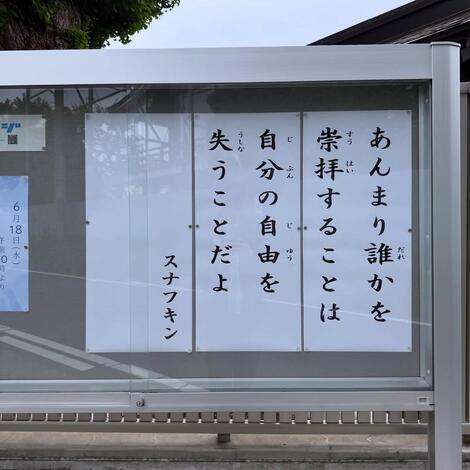 あんまり誰かを
崇拝することは
自分の自由を
失うことだよ
スナフキン
6月18日(水)